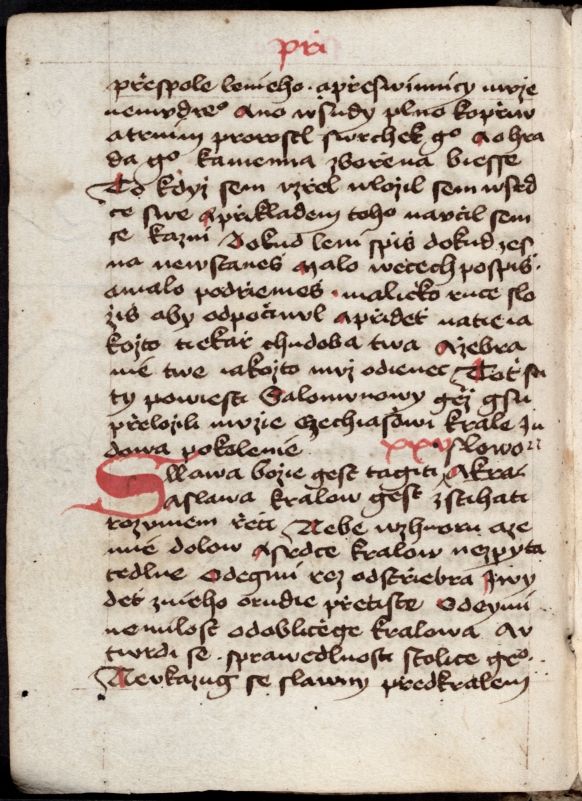 při
přespole lenieho · apřeswinnicy muže
nemudreº Ano wšudy plno kopřiw
atrnim prorostl swrchek gº Aohra
da gº kamenna zbořena biesse
To kdyz sem uzřel wlozil sem wsrd
ce swe Apřikladem toho naučil sem
se kazni Dokud leni spiš dokud zes
na newstaneš Malo wecech pospiš ·
amalo podřiemeš · maličko ruce slo
žiš aby odpočinul Apřideť natie ia
kožto tiekař chudoba twa Ažebra
nie twe iakožto muž odienec Toť su
ty powiesti Salomunowy gež gsu
přeložili mužie Ezechiašowi krale Ju
dowa pokolenie xxv slowo
Sllawa božie gest tagiti Akra
aslawa kralow gest zstihati
rozumem řeči Nebe wzhuoru aze
mie dolow Asrdce kralow nezpyta
tedlne Odegmi rez odstřiebra Awy
deť zmeho orudie přečiste Odeymi
nemilost odobličege kralowa Au
twrdi se · sprawedlnosti stolice geº
Neukazug se slawny předkralem